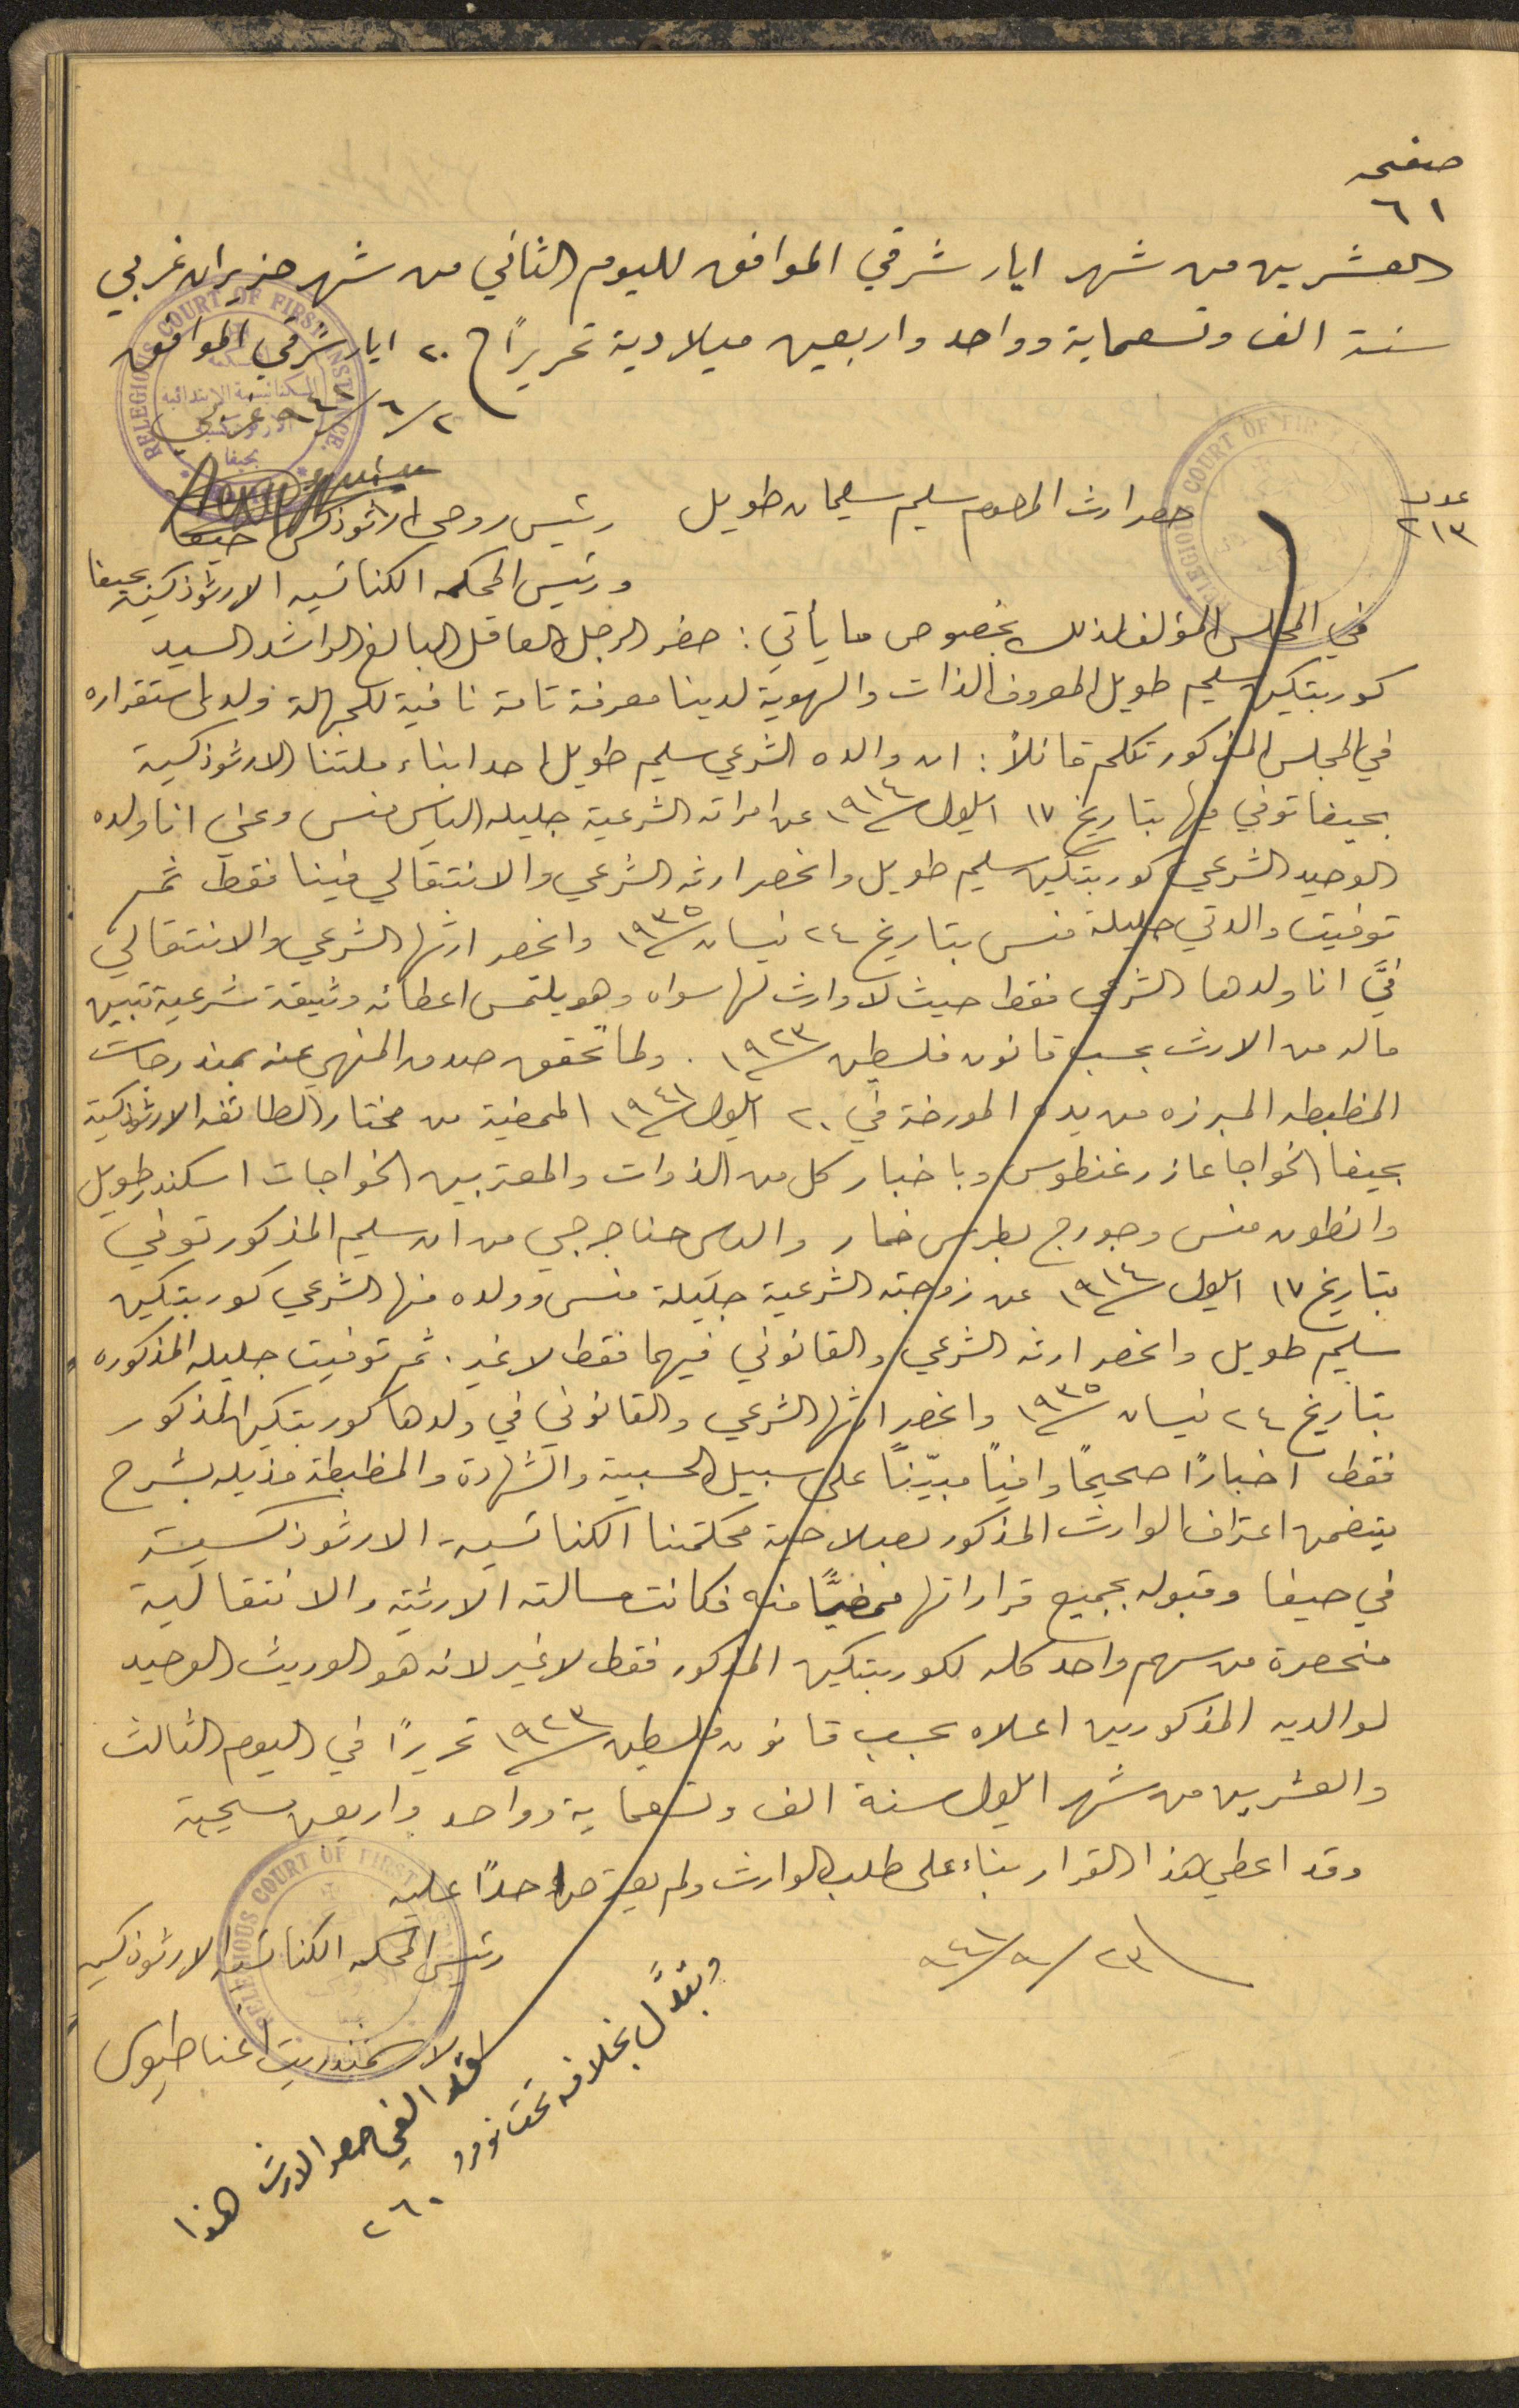 صفحه
٦١
العشرين من شهر ايار شرقي الموافق لليوم الثاني من شهر حزيران غربي
سنة الف وتسعماية وواحد واربعين ميلادية تحريرًا في ٢٠ ايار شرقي الموافق
٢/٦/٩٤١ غربي
RELEGIOUS COURT OF FIRST INSTANCE.
المحكمة
الكنائسية الابتدائية
الارثوذكسية
بحيفا
RELEGIOUS COURT OF FIRST
عدد
٢١٣
حصر ارث المرحوم سليم سليمان طويل
رئيس روحي الارثوذكس حيفا
ورئيس المحكمه الكنائسيه الارثوذكسية بحيفا
في المجلس المؤلف لذلك بخصوص ما يأتي: حضر الرجل العاقل البالغ الراشد السيد
كوربتكين سليم طويل المعروف الذات والهوية لدينا معرفة تامة نافية للجهالة ولدى استقراره
في المجلس المذكور تكلم قائلاً: ان والده الشرعي سليم طويل احد ابناء ملتنا الارثوذكسية
بحيفا توفي فيها بتاريخ ١٧ ايلول سنة ١٩١٤ عن امراته الشرعية جليله الياس منسى وعني انا ولده
الوحيد الشرعي كوربتكين سليم طويل وانحصر ارثه الشرعي والانتقالي فينا فقط ثم
توفيت والدتي جليلة منسى بتاريخ ٢٤ نيسان سنة ١٩٣٥ وانحصر ارثها الشرعي والانتقالي
فيَّ انا ولدها الشرعي فقط حيث لا وارث لها سواه وهو يلتمس اعطائه وثيقة شرعية تبين
ماله من الارث بحسب قانون فلسطين سنة ١٩٢٣. ولما تحقق صدق المنهي عنه بمندرجات
المظبطه المبرزه من يده المورخة في ٢٠ ايلول سنة ١٩٤١ الممضية من مختار الطائفه الارثوذكسية
بحيفا الخواجا عازر غنطوس وباخبار كل من الذوات والمعتبرين الخواجات اسكندر طويل
وانطون منسى وجورج بطرس خمار والياس حنا جرجي من ان سليم المذكور توفي
بتاريخ ١٧ ايلول سنة ١٩١٤ عن زوجته الشرعية جليلة منسى وولده منها الشرعي كوربتكين
سليم طويل وانحصر ارثه الشرعي والقانوني فيهما فقط لا غير. ثم توفيت جليله المذكوره
بتاريخ ٢٤ نيسان سنة ١٩٣٥ وانحصر ارثها الشرعي والقانوني في ولدها كوربتكين المذكور
فقط اخبارًا صحيحًا وافيًا مبيّنًا على سبيل الحسبية والشهادة والمظبطة مذيله بشرح
يتضمن اعتراف الوارث المذكور بصلاحية محكمتنا الكنائسية الارثوذكسية
في حيفا وقبوله بجميع قراراتها ممضيًّا منه فكانت مسالته الارثية والانتقالية
منحصرة من سهم واحد كله لكوربتكين المذكور فقط لا غير لانه هو الوريث الوحيد
لوالديه المذكورين اعلاه بحسب قانون فلسطين سنة ١٩٢٣ تحريرًا في اليوم الثالث
والعشرين من شهر ايلول سنة الف وتسعماية وواحد واربعين مسيحية
وقد اعطي هذا القرار بناء على طلب الوارث ولم يعترض احدًا عليه
٢٣/٩/٩٤١
رئيس المحكمه الكنائسيه الارثوذكسيه
RELEGIOUS COURT OF FIRST
الارشمندريت اغناطيوس
لقد الغي حصر الارث هذا
وتبدَّل بخلافه تحت نومرو
٢٦٠